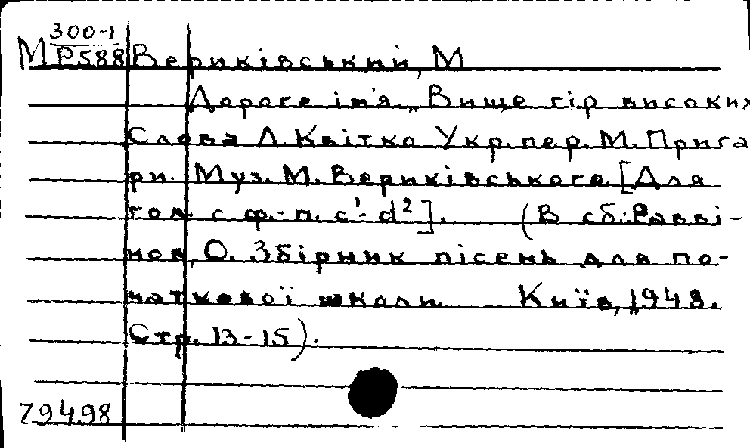 300-1
М Р588 Вериківський, М
Дороге ім'я „Вище гір високих
Слова Л. Квітко Укр. пер. М. Прига
ри. Муз. М. Вериківського. [Для
гол. с ф.-п. c¹-d²]. (В сб: Равві-
нов, О. Збірник пісень для по-
чаткової школи. Київ, 1948.
Стр. 13-15).
79498